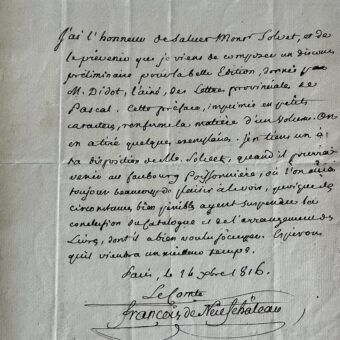 J'ai l'honneur de saluer Monsr Solvet, et de
le prévenir que je viens de composer un discours
préliminaire pour la belle Edition, donnée par
M. Didot, l'ainé, des Lettres provinciales de
Pascal. Cette préface, imprimée en petits
caracteres, renferme la matiere d'un volume. On
en a tiré quelques exemplaires. J'en tiens un à
la disposition de M. Solvet, quand il pourra
venir au faubourg Poissonniere, où l'on aura
toujours beaucoup de plaisir à le voir, quoique des
circonstances bien pénibles ayent suspendu la
conclusion du catalogue et de l'arrangement des
Livres, dont il a bien voulu s'occuper. Espérons
qu'il viendra un meilleur temps.
Paris, le 16 xbre 1816.
Le Comte
François de Neufchâteau